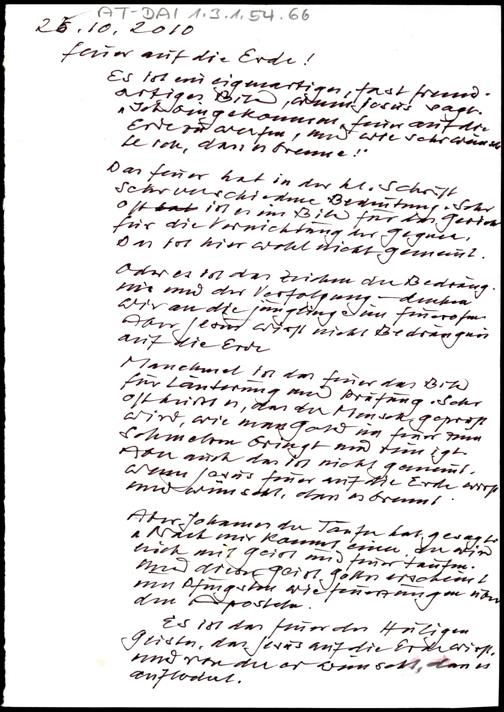 AT-DAI 1.3.1.54.66
26.10.2010
Feuer auf die Erde!
Es ist ein eigenartiges, fast fremd-
artiges Bild, wenn Jesus sagt:
"Ich bin gekommen, Feuer auf die
Erde zu werfen, und wie sehr wünsch
te ich, dass es brenne!"
Das Feuer hat in der hl. Schrift
sehr verschiedene Bedeutung. Sehr
oft ist es ein Bild für das Gericht
für die Vernichtung der Gegner.
Das ist hier wohl nicht gemeint.
Oder es ist das Zeichen der Bedräng-
nis und der Verfolgung - denken
wir an die Jünglinge im Feuerofen
Aber Jesus wirft nicht Bedrängnis
auf die Erde
Manchmal ist das Feuer das Bild
für Läuterung und Prüfung. Sehr
oft heisst es, dass der Mensch geprüft
wird, wie man Gold im Feuer zum
Schmelzen bringt und reinigt.
Aber auch das ist nicht gemeint.
wenn Jesus Feuer auf die Erde wirft
und wünscht, dass es brennt.
Aber Johannes der Täufer hat gesagt:
"Nach mir kommt einer, der wird
euch mit Geist und Feuer taufen.
Und dieser Geist Gottes erscheint
zu Pfingsten wie Feuerzungen über
den Aposteln.
Es ist das Feuer des Heiligen
Geistes, das Jesus auf die Erde wirft
und von dem er wünscht, dass es
auflodert.